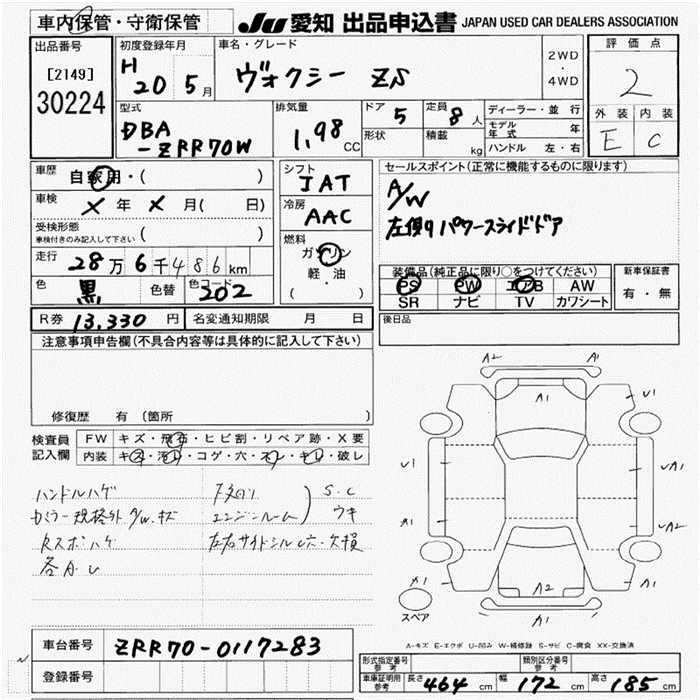 車内保管・守衛保管
JU 愛知 出品申込書 JAPAN USED CAR DEALERS ASSOCIATION
出品番号
[2149]
30224
初度登録年月
H 20 5月
車名・グレード
ヴォクシー ZS
2WD
・
4WD
評価点
2
外装 内装
E C
型式
DBA
-ZRR70W
排気量
1,98 CC
ドア 5
形状
定員 8人
積載 kg
ディーラー・並行
モデル年式 年
ハンドル 左・右
車歴 自家用・( )
車検 X年X月( 日)
受検形態
車検付きのみ記入して下さい ( )
走行 28万6千486km
色 黒 色替 色コード 202
シフト
IAT
冷房
AAC
燃料
ガソリン
軽・油
( )
セールスポイント(正常に機能するものに限ります)
A/W
左側9パワースライドドア
装備品(純正品に限り○をつけてください)
PS PW エアB AW
SR ナビ TV カワシート
新車保証書
有・無
R券 13,330円 名変通知期限 月 日
後日品
注意事項申告欄(不具合内容等は具体的に記入して下さい)
修復歴 有 (箇所 )
検査員
記入欄
FW キズ・飛石・ヒビ割・リペア跡・X要
内装 キズ・汚レ・コゲ・穴・スレ・キレ・破レ
ハンドルハゲ
カラー規格外 A/W.キズ
Rスポハゲ
各A.U
下廻り
エンジンルーム
S.C
ウキ
左右サイドシル凹・欠損
A2 A1
A1
U1
U1 UA1
A1 UA2
A1 A2 A1
A1
スペア
A-キズ E-エクボ U-凹み W-補修跡 S-サビ C-腐食 XX-交換済
車台番号 ZRR70-0117283
登録番号
型式指定番号
参考
類別区分番号
参考
車庫証明用
参考
長さ 464 cm 幅 172 cm 高さ 185 cm